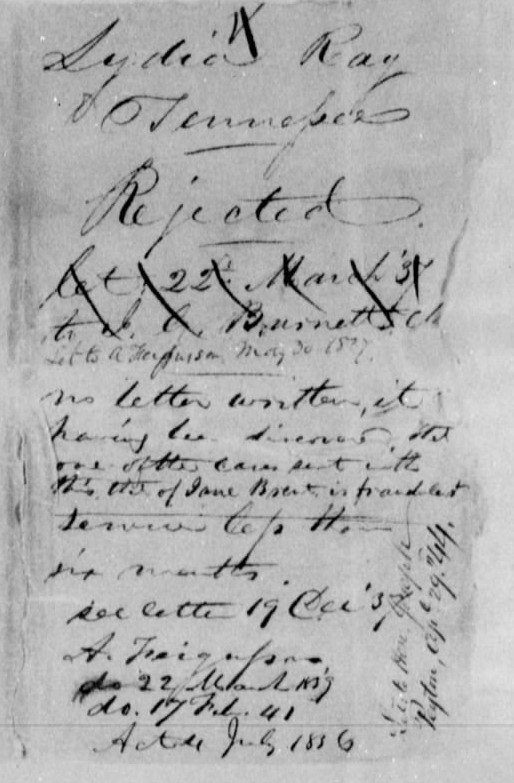 Lydia Ray
Tennessee
Rejected
let 22d March '37
to I. C. Burnett
Let to A Ferguson May 30 1837.
no letter written, it
having been discovered, that
one of the cases sent with
this, that of Jane Brent is fraudulent
Service less than
six months.
see letter 19 Dec '37
A. Ferguson
do 22 March 1839
do. 17 Feb. 41
Act 4 July 1836
Let to Hon. Joseph
Peyton, Apl 29. '44.